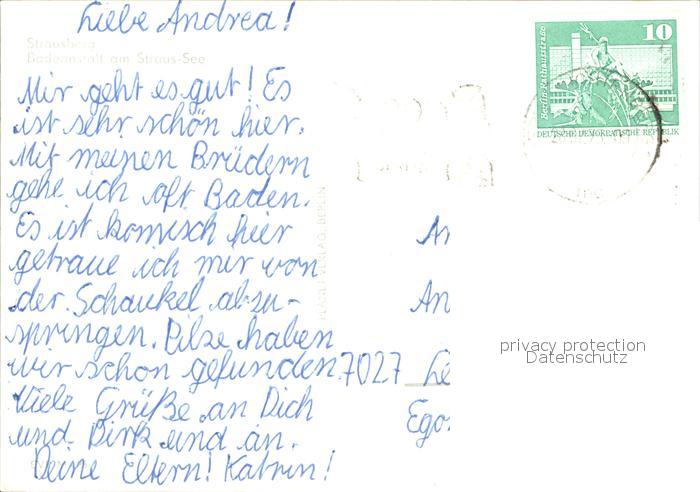 Liebe Andrea!
Strausberg
Badeanstalt am Straus-See
Mir geht es gut! Es
ist sehr schön hier.
Mit meinen Brüdern
gehe ich oft Baden.
Es ist komisch hier
getraue ich mir von
der Schaukel abzu-
springen. Pilze haben
wir schon gefunden.
Viele Grüße an Dich
und Dirk und an.
Deine Eltern! Katrin!
An
7027 Le
Ego
10
Berlin, Rathausstraße
DEUTSCHE DEMOKRATISCHE REPUBLIK
VERLAG, BERLIN
privacy protection
Datenschutz